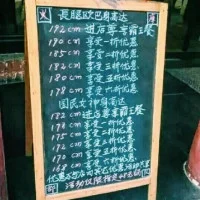 長腿欧巴身高达
192 cm 进店尊享霸王餐
190 cm 享受一折优惠
185 cm 享受二折优惠
183 cm 享受三折优惠
180 cm 享受五折优惠
178 cm 享受六折优惠
国民女神身高达
182 cm 进店尊享霸王餐
179 cm 享受一折优惠
175 cm 享受二折优惠
172 cm 享受三折优惠
170 cm 享受五折优惠
168 cm 享受六折优惠